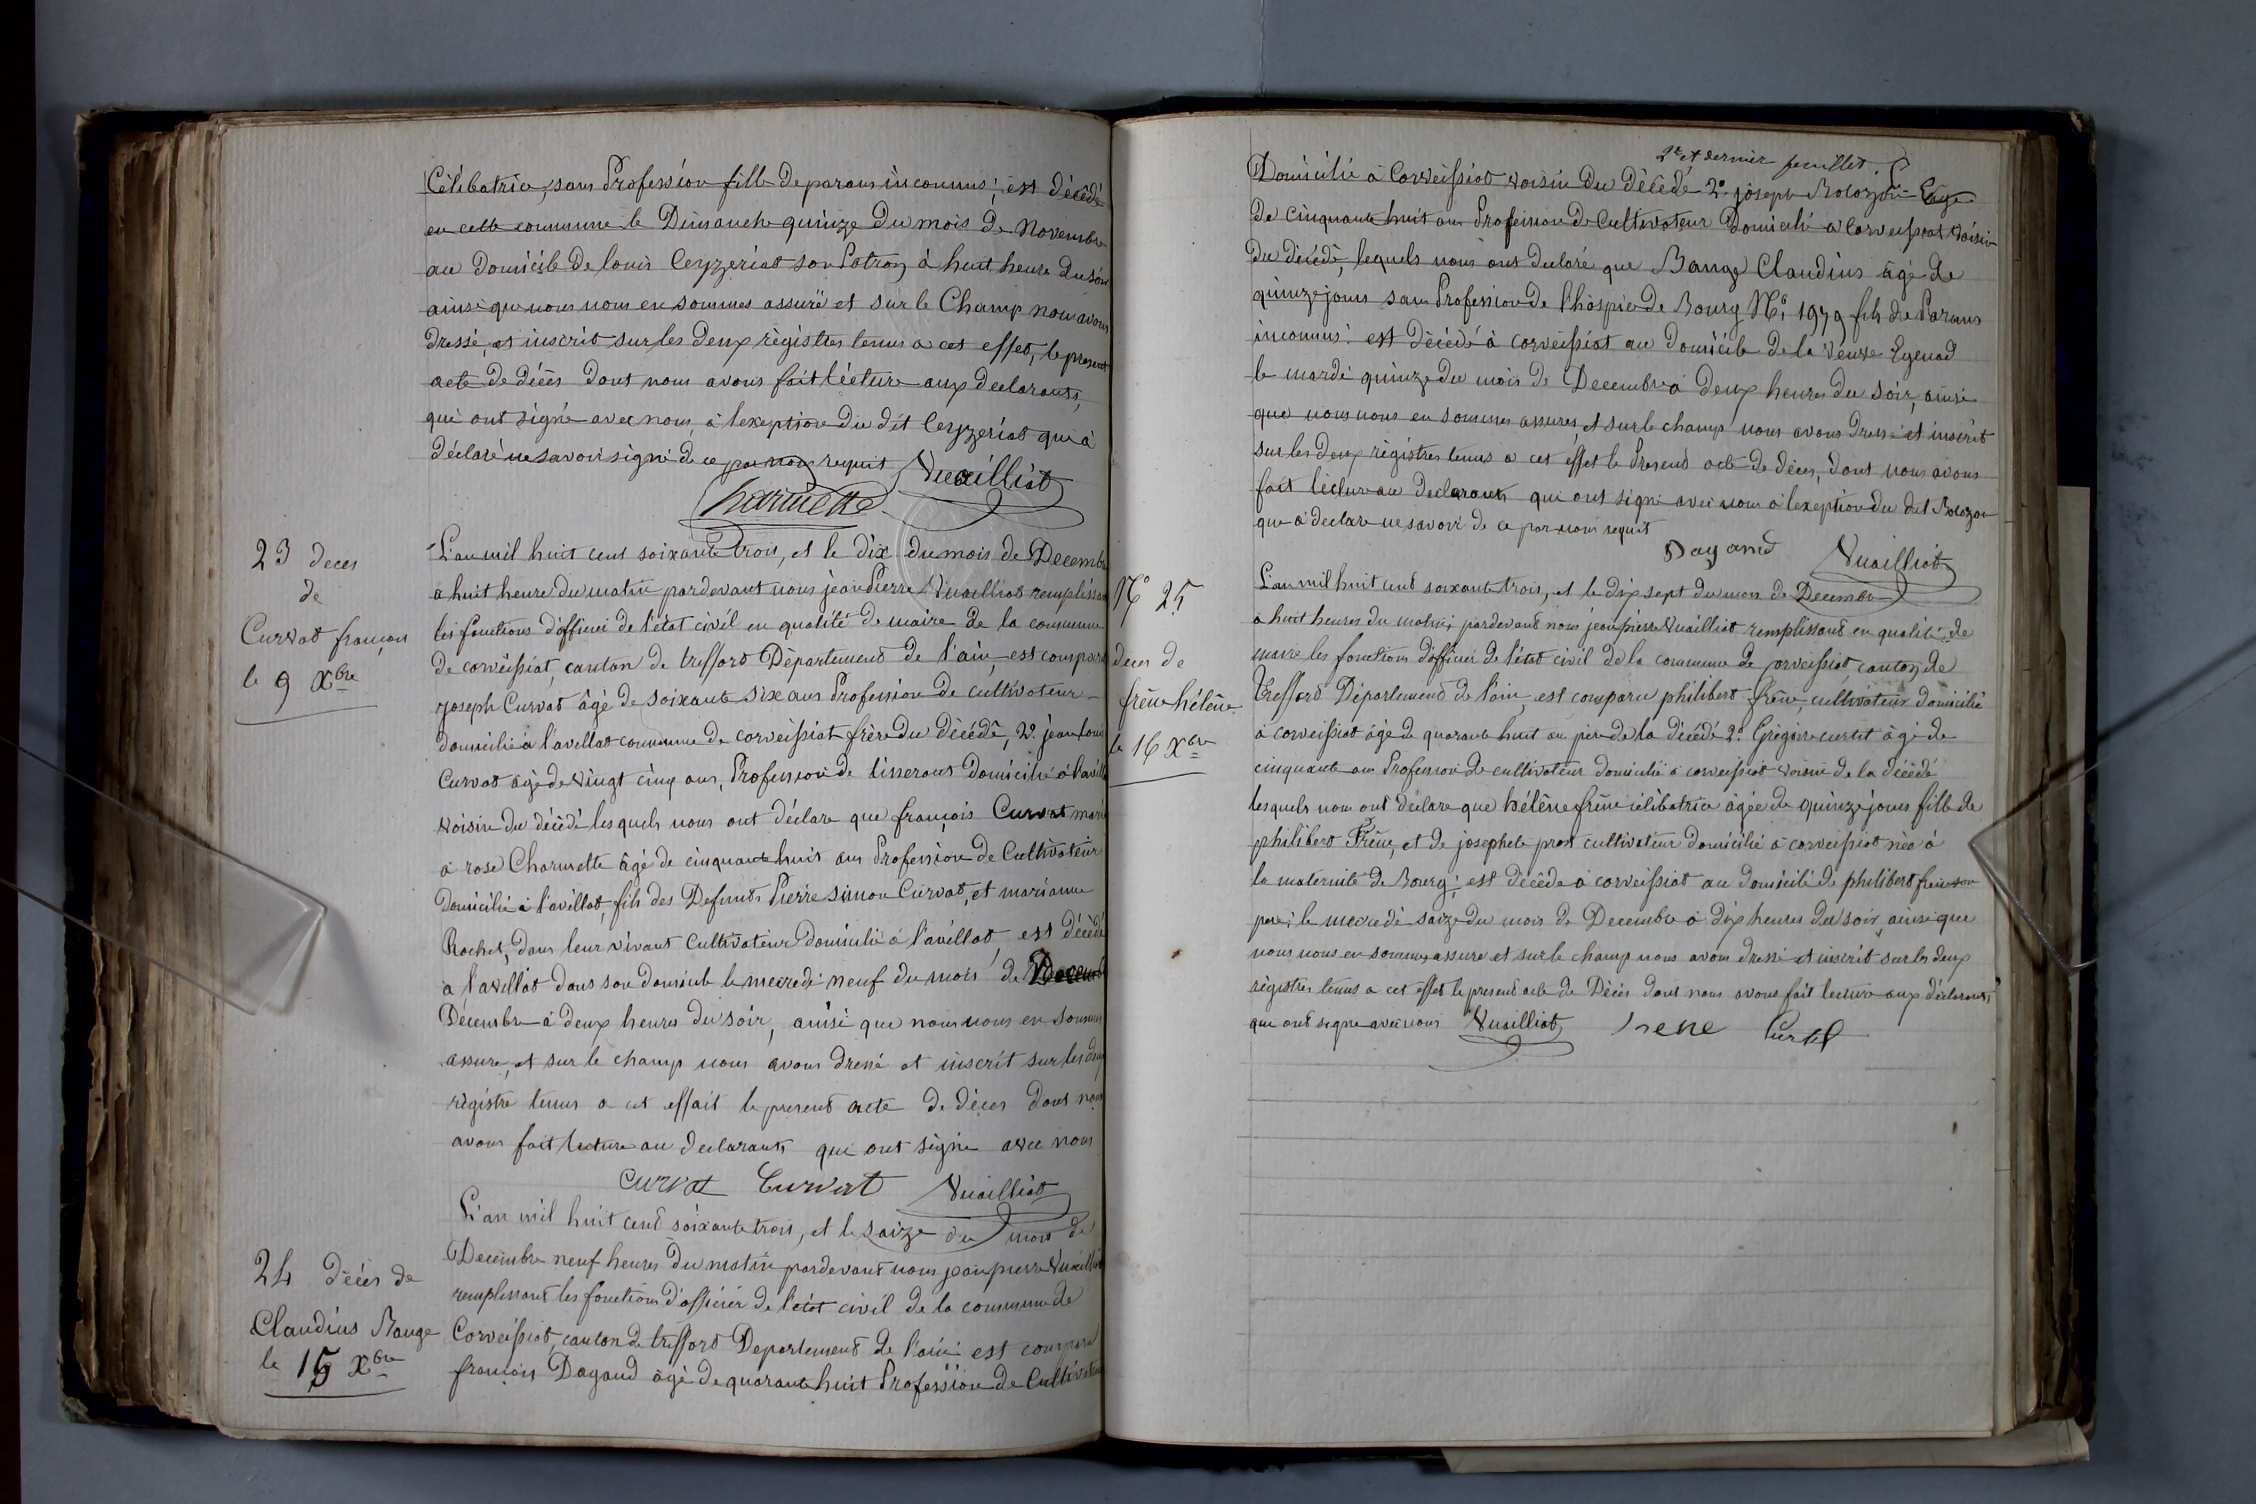 Célibatrice, sans Profession fille de parans inconnus; est décédé
en cette commune le Dimanche quinze du mois de Novembre
au Domicile de louis Ceyzériat son Patron à huit heure du soir
ainsi que nous nous en sommes assuré et sur le Champ nous avons
dressé, et inscrit sur les deux règistres tenus a cet effet, le present
acte de décès dont nous avons fait lécture aux declarants,
qui ont signé avec nous, à l'exeption du dit Ceyzeriat qui à
déclaré ne savoir signé de ce par nous requit Vuailliat
Charnette
23 deces
de
Curvat françois
le 9 Xbre
L'an mil huit cent soixante trois, et le dix du mois de Decembre
a huit heure du matin pardevant nous jean Pierre Vuailliat remplissan
les fonctions d'officiei de l'état civil en qualité de maire de la commune
de corveissiat, canton de treffort Département de l'ain, est comparu
joseph Curvat âgé de soixante six ans Profession de cultivateur
domicilié a l'avellat commune de corveissiat frère du décédé, 2º. jean louis
Curvat âgé de vingt cinq ans, Profession de tisserant Domicilié à l'avillat
voisin du décédé lesquels nous ont déclare que françois Curvat marié
a rose Charnette âgé de cinquante huit ans Profession de Cultivateur
Domicilié à l'avillat, fils des Defunts Pierre simon Curvat, et marianne
Rochet, dans leur vivant Cultivateur Domicilié à l'avillat, est décédé
a l'avillat dans son domicile le mecredi neuf du mois de Decemb
Décembre à deux heures du soir, ainsi que nous nous en sommes
assure, et sur le champ nous avons dressé et inscrit sur les deux
règistre tenus a cet effait le present acte de décès dont nous
avons fait lecture au declarants qui ont signe avec nous
Curvat Curvat Vuailliat
24 Décés de
Claudius Bange
le 15 Xbre
L'an mil huit cent soixante trois, et le saize du mois de
Decembre neuf heures du matin pardevant nous jean pierre Vuailliat
remplissant les fonctions d'officier de l'état civil de la commune de
Corveissiat, canton de treffort Departement de l'ain est comparu
françois Dagand âgé de quarante huit Profession de Cultivateur
2e et dernier feuillet.
Domicilié à Corveissiat voisin du décédé 2º. joseph Bolozon âgé
de cinquante huit ans Profession de Cultivateur Domicilié a Corveissiat voisin
du décédé, lesquels nous ont declaré que Bange Claudius âgé de
quinze jours sans Profession de l'hospice de Bourg Nº 1979 fils de Parans
inconnus: est décédé à corveissiat au Domicile de la veuve Eynaud
le mardi quinze du mois de Decembre à deux heures du soir, ainsi
que nous nous en sommes assures, et sur le champ nous avons dressé et inscrit
sur les deux règistres tenus a cet effet le Present acte de déces, dont nous avons
fait lecture au declarants qui ont signé avec nous à l'exeption du dit Bolozon
que à declare ne savoir de ce par nous requit
Dagand Vuailliat
Nº 25
deces de
frêne hélène
le 16 Xbre
L'an mil huit cent soixante trois, et le dix sept du mois de Decembre
a huit heures du matin, pardevant nous jean pierre Vuailliat remplissant en qualité de
maire les fonctions d'officier de l'état civil de la commune de corveissiat canton de
Treffort Département de l'ain, est comparu philibert frêne, cultivateur domicilié
a corveissiat âgé de quarante huit an père de la décédé 2º. Grégoire curtet âgé de
cinquante ans Profession de cultivateur domicilié à corveissiat voisin de la décédé
lesquels nous ont déclare que hélène frêne célibatrice âgée de quinze jours fille de
philibert Frêne, et de josephete prost cultivateur domicilié à corveissiat née à
la maternité de Bourg; est decédé à corveissiat au domicile de philibert frêne son
pere; le mecredi saize du mois de Decembre à dix heures du soir, ainsi que
nous nous en sommes assure et sur le champ nous avons dressé et inscrit sur les deux
règistres tenus a cet effet le present acte de Décès dont nous avons fait lecture aux declarants
que ont signe avec nous Vuailliat frene Curtet